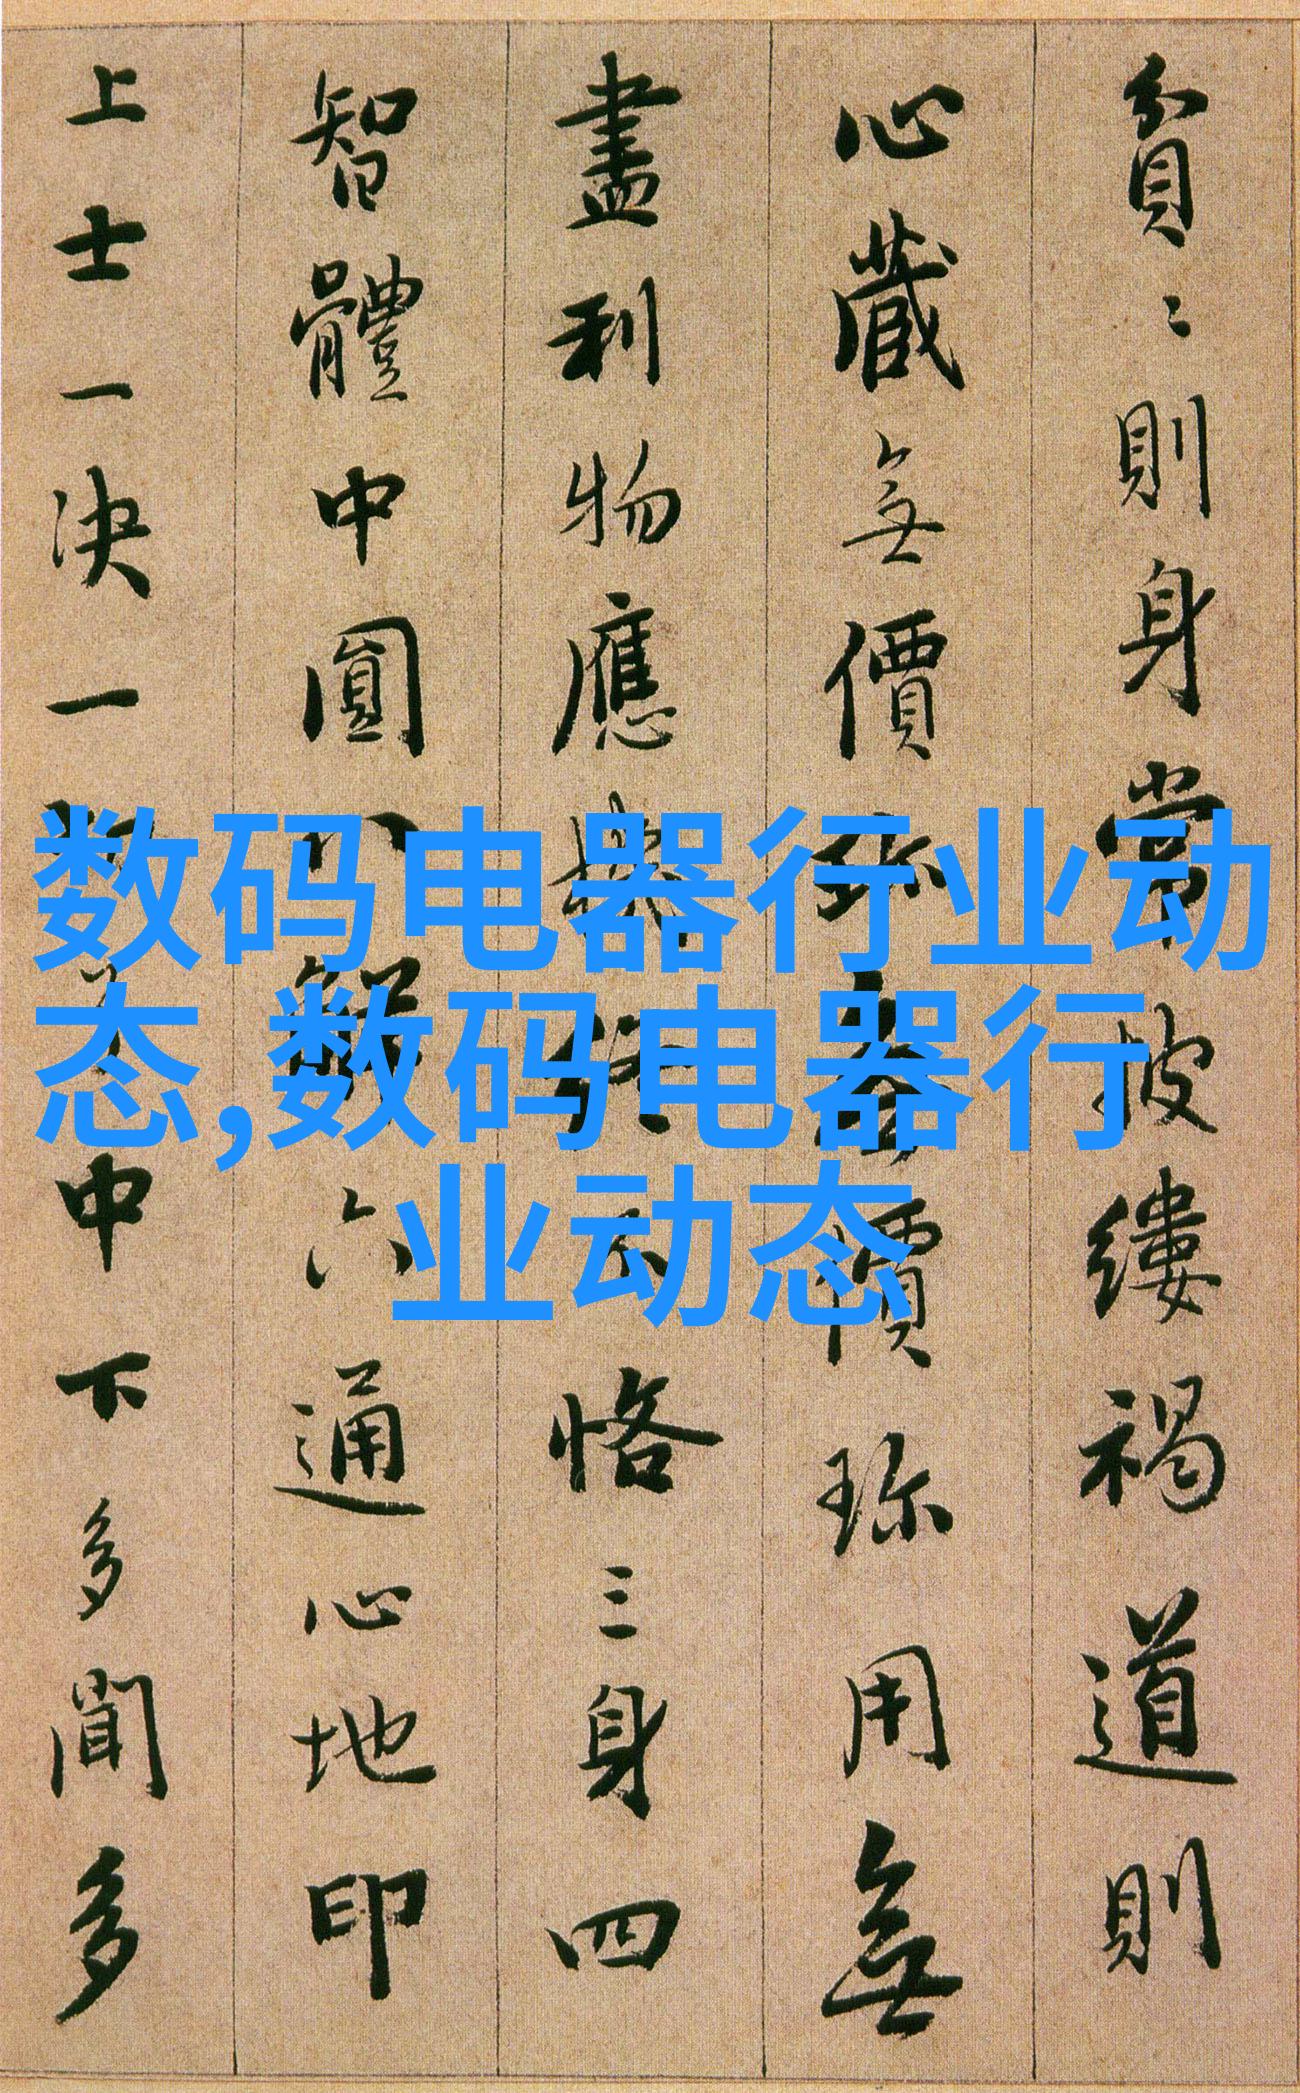 数码电器行业动
态,数码电器行
业动态
貧〻則身常披縷褐道則
心藏無價珍無價珍用無
盡利物應機終不恪三身四
智體中圓八解六通心地印
上士一決一中下多聞多